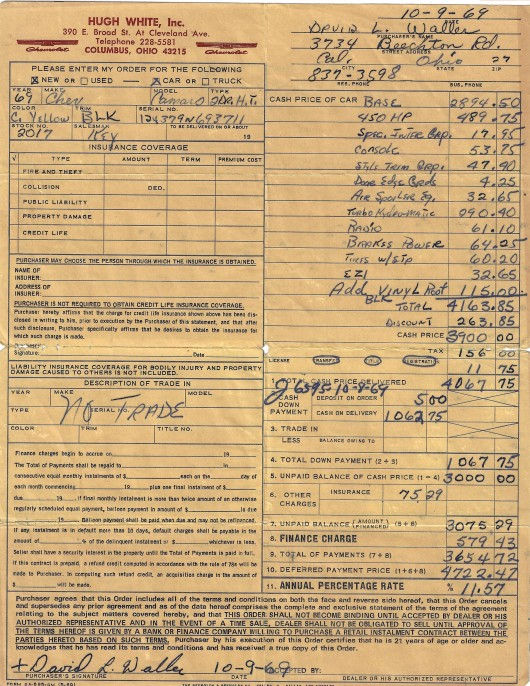 10-9-69
HUGH WHITE, Inc.
390 E. Broad St. At Cleveland Ave.
Telephone 228-5581
COLUMBUS, OHIO 43215
Chevrolet
Chevrolet
DATE
David L. Waller
PURCHASER'S NAME
3734 Beechton Rd.
STREET ADDRESS
Col. Ohio 27
CITY STATE ZIP
837-3598
RES. PHONE BUS. PHONE
PLEASE ENTER MY ORDER FOR THE FOLLOWING
X NEW OR USED X CAR OR TRUCK
YEAR MAKE MODEL TYPE
69 Chev Camaro 2DR. H.T.
COLOR TRIM SERIAL NO.
C. Yellow BLK 124379N693711
STOCK NO. SALESMAN TO BE DELIVERED ON OR ABOUT
2017 Key 19
INSURANCE COVERAGE
√ TYPE AMOUNT TERM PREMIUM COST
FIRE AND THEFT
COLLISION DED.
PUBLIC LIABILITY
PROPERTY DAMAGE
CREDIT LIFE
PURCHASER MAY CHOOSE THE PERSON THROUGH WHICH THE INSURANCE IS OBTAINED.
NAME OF
INSURER:
ADDRESS OF
INSURER:
PURCHASER IS NOT REQUIRED TO OBTAIN CREDIT LIFE INSURANCE COVERAGE.
Purchaser hereby affirms that the charge for credit life insurance shown above has been disclosed in writing to him, prior to execution by the Purchaser of this statement, and that after such disclosure, Purchaser specifically affirms that he desires to obtain the insurance for which such charge is made.
Buyer's
Signature: Date
LIABILITY INSURANCE COVERAGE FOR BODILY INJURY AND PROPERTY
DAMAGE CAUSED TO OTHERS IS NOT INCLUDED.
DESCRIPTION OF TRADE IN
YEAR MAKE MODEL
TYPE SERIAL NO.
NO TRADE
COLOR TRIM TITLE NO.
Finance charges begin to accrue on 19
The Total of Payments shall be repaid to in
consecutive equal monthly instalments of $ each on the day of
each month commencing 19 plus one final instalment of $
due 19 . If final monthly instalment is more than twice amount of an otherwise
regularly scheduled equal payment, balloon payment in amount of $ is due
19 . Balloon payment shall be paid when due and may not be refinanced.
If any instalment is in default more than 10 days, default charges shall be payable in the
amount of % of the delinquent instalment or $ whichever is less.
Seller shall have a security interest in the property until the Total of Payments is paid in full.
If this contract is prepaid, a refund credit computed in accordance with the rule of 78s will be
made to Purchaser. In computing such refund credit, an acquisition charge in the amount of
$ will be made.
CASH PRICE OF CAR BASE 2894.50
450 HP 489.75
Spec. Inter Grp. 17.95
Console 53.75
Style Trim Grp. 47.40
Door Edge Grds 4.25
Air Spoiler Eq. 32.65
Turbo Hydro-Matic 290.40
Radio 61.10
Brakes Power 64.25
Tires w/stp 60.20
EZI 32.65
Add Vinyl Roof 115.00
BLK TOTAL 4163.85
DISCOUNT 263.85
CASH PRICE 3900 00
TAX 156 00
LICENSE TRANSFER TITLE REGISTRATION
11 75
TOTAL CASH PRICE DELIVERED 4067 75
10-9-69
CASH DOWN PAYMENT DEPOSIT ON ORDER 5.00
CASH ON DELIVERY 1062 75
3. TRADE IN
LESS BALANCE OWING TO
4. TOTAL DOWN PAYMENT (2 + 3) 1067 75
5. UNPAID BALANCE OF CASH PRICE (1 – 4) 3000 00
6. OTHER CHARGES INSURANCE 75.29
7. UNPAID BALANCE (AMOUNT FINANCED) (5 + 6) 3075.29
8. FINANCE CHARGE 579 43
9. TOTAL OF PAYMENTS (7 + 8) 3654 72
10. DEFERRED PAYMENT PRICE (1+6+8) 4722.47
11. ANNUAL PERCENTAGE RATE % 11.57
Purchaser agrees that this Order includes all of the terms and conditions on both the face and reverse side hereof, that this Order cancels
and supersedes any prior agreement and as of the date hereof comprises the complete and exclusive statement of the terms of the agreement
relating to the subject matters covered hereby, and that THIS ORDER SHALL NOT BECOME BINDING UNTIL ACCEPTED BY DEALER OR HIS
AUTHORIZED REPRESENTATIVE AND IN THE EVENT OF A TIME SALE, DEALER SHALL NOT BE OBLIGATED TO SELL UNTIL APPROVAL OF
THE TERMS HEREOF IS GIVEN BY A BANK OR FINANCE COMPANY WILLING TO PURCHASE A RETAIL INSTALMENT CONTRACT BETWEEN THE
PARTIES HERETO BASED ON SUCH TERMS. Purchaser by his execution of this Order certifies that he is 21 years of age or older and ac-
knowledges that he has read its terms and conditions and has received a true copy of this Order.
+ David L. Waller 10-9-69 ACCEPTED BY:
PURCHASER'S SIGNATURE DEALER OR HIS AUTHORIZED REPRESENTATIVE